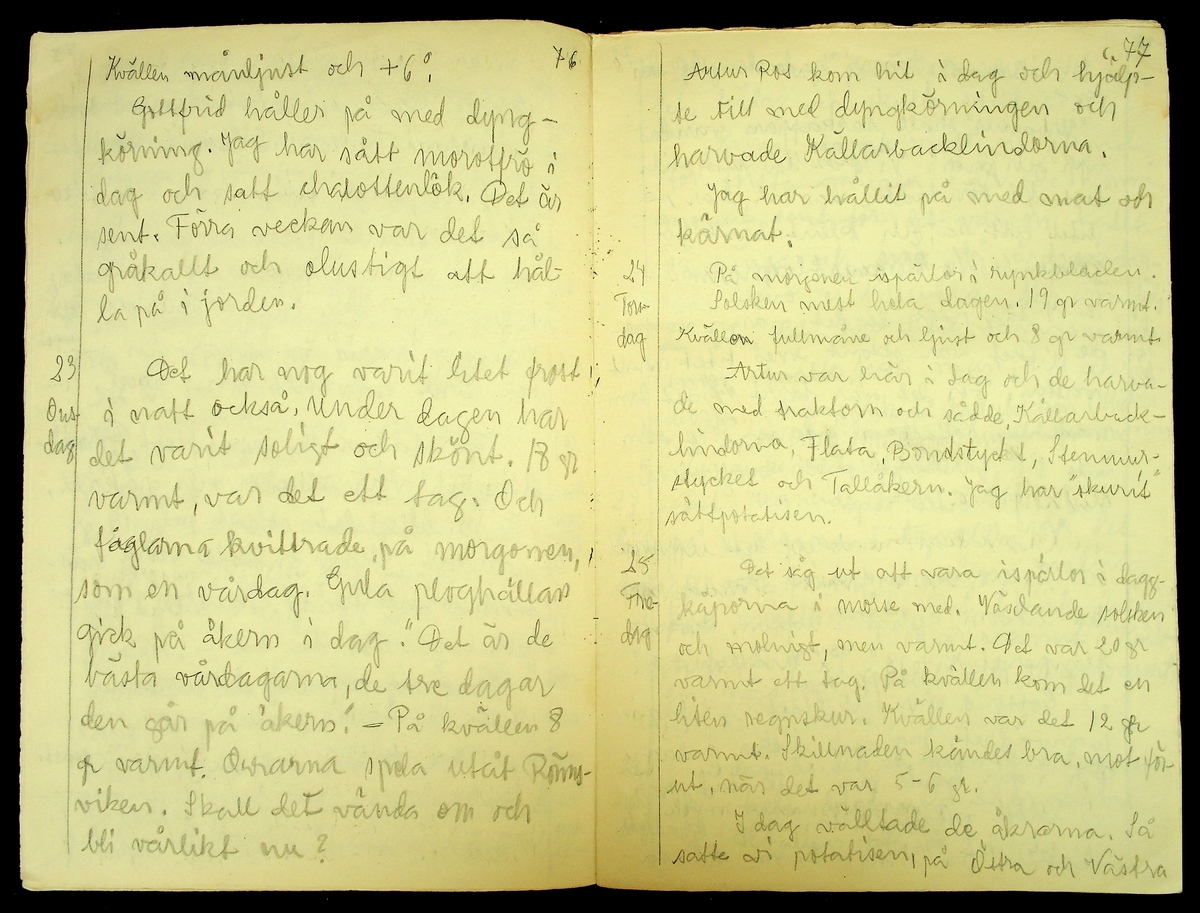 76
Kvällen månljust och +6°.
Gottfrid håller på med dyng-
körning. Jag har sått morotfrö i
dag och satt chalottenlök. Det är
sent. Förra veckan var det så
gråkallt och olustigt att hål-
la på i jorden.
23
Ons-
dag
Det har nog varit litet frost
i natt också. Under dagen har
det varit soligt och skönt. 18 gr
varmt, var det ett tag. Och
fåglarna kvittrade, på morgonen,
som en vårdag. Gula ploghållan
gick på åkern i dag. "Det är de
bästa vårdagarna, de tre dagar
den går på åkern." – På kvällen 8
gr varmt. Orrarna spela utåt Rönns-
viken. Skall det vända om och
bli vårlikt nu?
77
Artur Ros kom hit i dag och hjälp-
te till med dyngkörningen och
harvade Källarbacklindorna.
Jag har hållit på med mat och
kärnat.
24
Tors-
dag
På morgonen ispärlor i rynkbladen.
Solsken mest hela dagen. 19 gr varmt.
Kvällen fullmåne och ljust och 8 gr varmt
Artur var här i dag och de harva-
de med traktorn och sådde, Källarback-
lindorna, Flata, Bondstycket, Stenmur-
stycket och Tallåkern. Jag har "skurit"
sättpotatisen.
25
Fre-
dag
Det såg ut att vara ispärlor i dagg-
kåporna i morse med. Växlande solsken
och molnigt, men varmt. Det var 20 gr
varmt ett tag. På kvällen kom det en
liten regnskur. Kvällen var det 12 gr
varmt. Skillnaden kändes bra, mot för-
ut, när det var 5-6 gr.
I dag vältade de åkrarna. Så
satte vi potatisen, på Östra och Västra